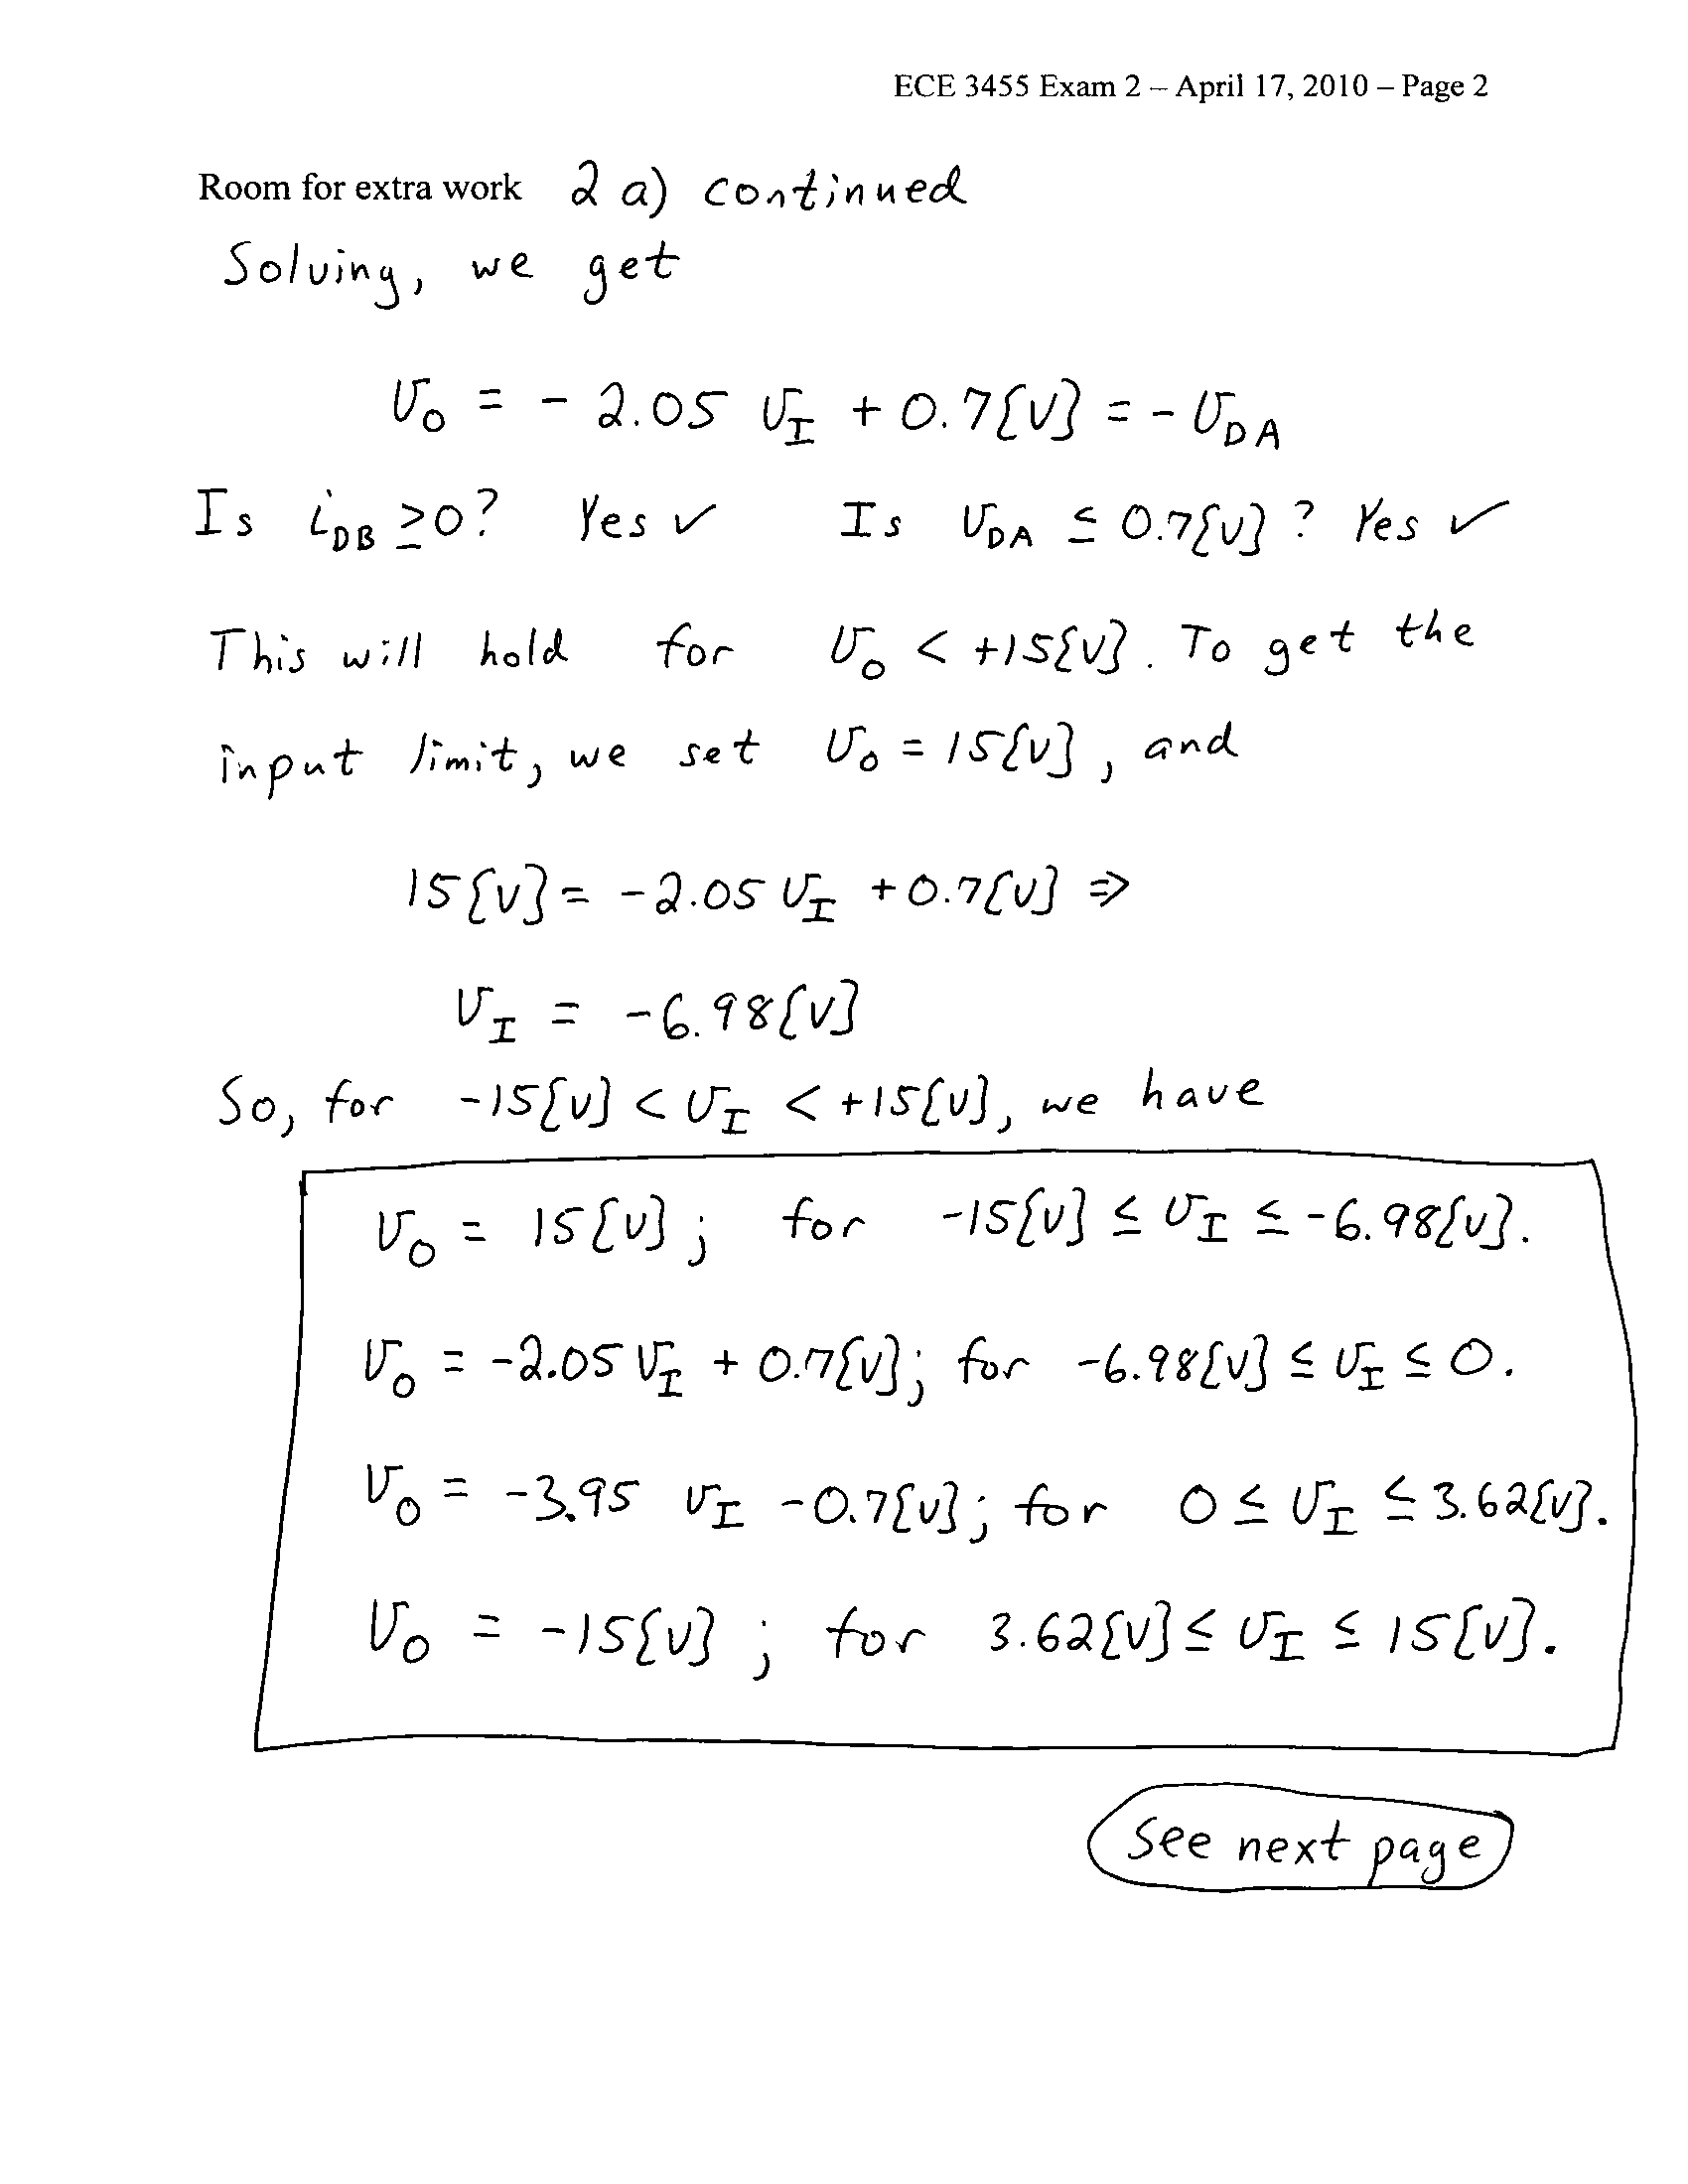 ECE 3455 Exam 2 – April 17, 2010 – Page 2
Room for extra work 2 a) continued
Solving, we get
v_O = - 2.05 v_I + 0.7{V} = - v_DA
Is i_DB ≥ 0? Yes ✓ Is v_DA ≤ 0.7{V}? Yes ✓
This will hold for v_O < +15{V}. To get the
input limit, we set v_O = 15{V}, and
15{V} = -2.05 v_I + 0.7{V} ⇒
v_I = -6.98{V}
So, for -15{V} < v_I < +15{V}, we have
v_O = 15{V}; for -15{V} ≤ v_I ≤ -6.98{V}.
v_O = -2.05 v_I + 0.7{V}; for -6.98{V} ≤ v_I ≤ 0.
v_O = -3.95 v_I - 0.7{V}; for 0 ≤ v_I ≤ 3.62{V}.
v_O = -15{V}; for 3.62{V} ≤ v_I ≤ 15{V}.
See next page